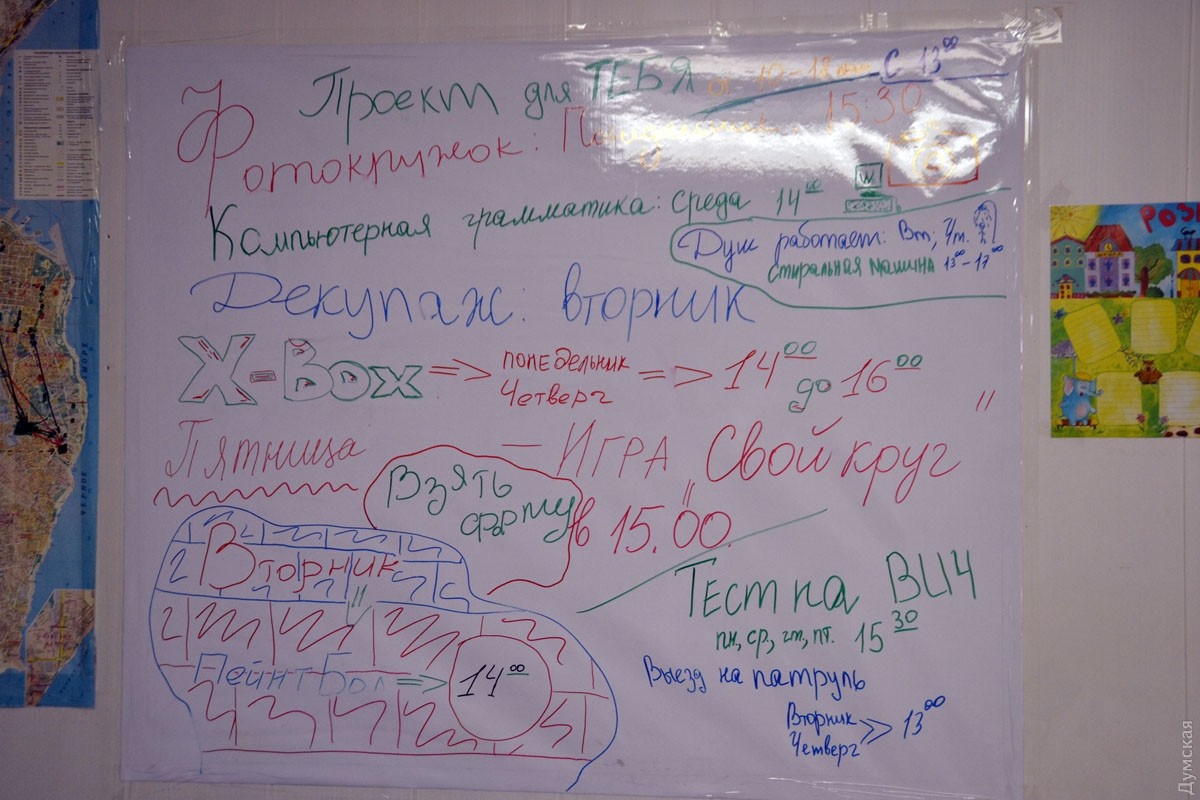 Проект для ТЕБЯ от 10-18 лет С 13⁰⁰
Фотокружок: Понедельник 15:30
Компьютерная грамматика: среда 14⁰⁰
W
Душ работает: Вт, Чт.
Стиральная машина 13⁰⁰-17⁰⁰
Декупаж: вторник
X-Box => понедельник Четверг => 14⁰⁰ до 16⁰⁰
Пятница — ИГРА „Свой круг"
в 15.00.
Взять форму
Вторник
"ПейнтБол => 14⁰⁰
Тест на ВИЧ
пн, ср, чт, пт. 15³⁰
Выезд на патруль
Вторник
Четверг >> 13⁰⁰
РОЗ
ЧЕРНОЕ МОРЕ
Думская